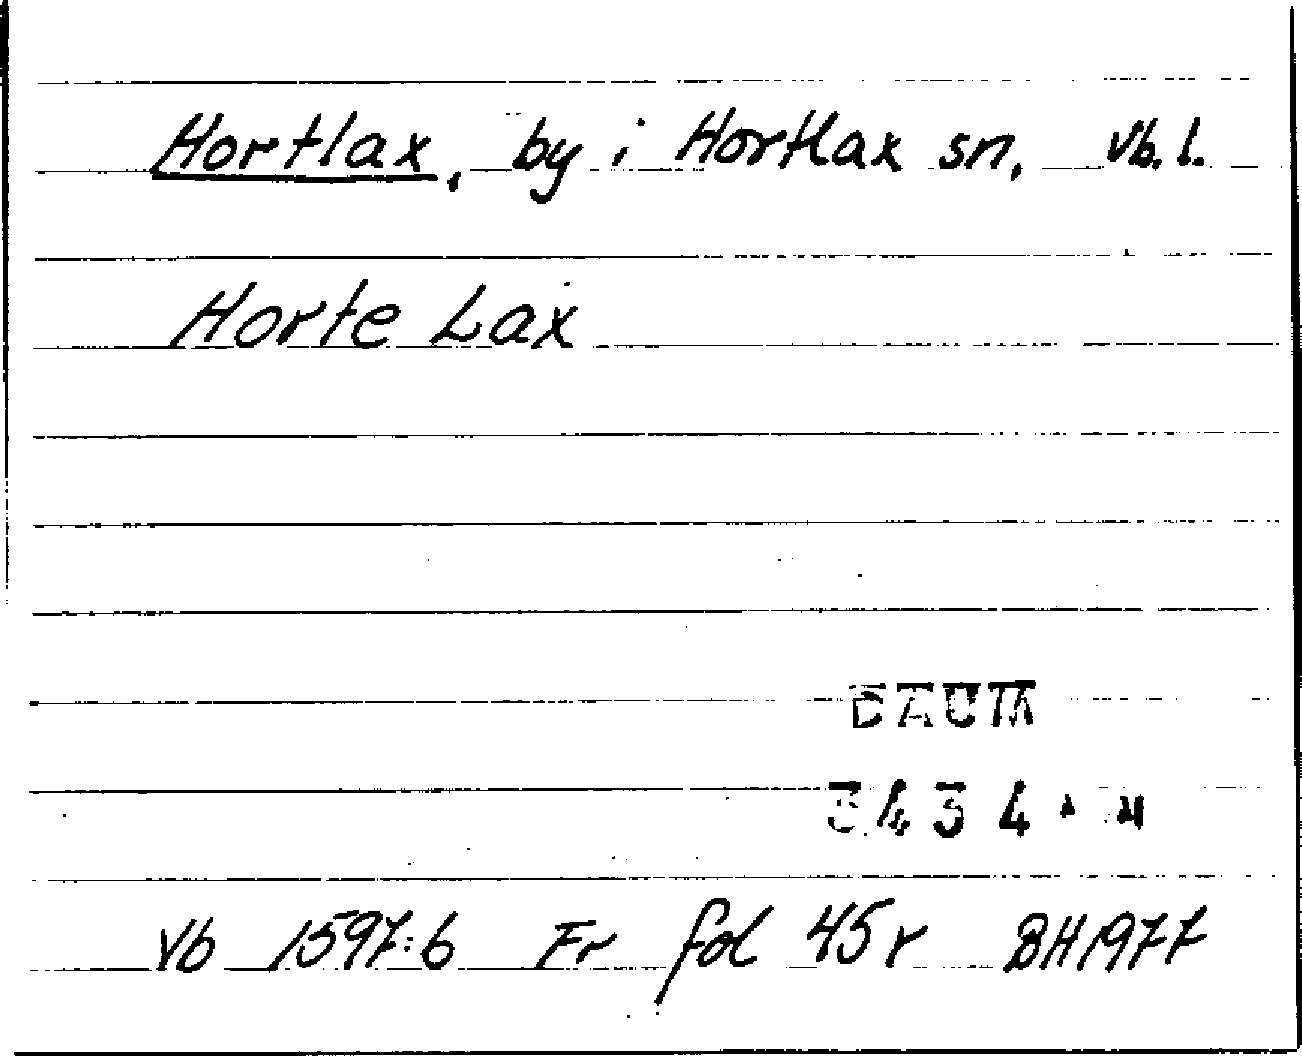 Hortlax, by i Hortlax sn, Vb. l.
Horte Lax
DAUM
3434
Vb 1597:6 Fr fol 45r BH1977